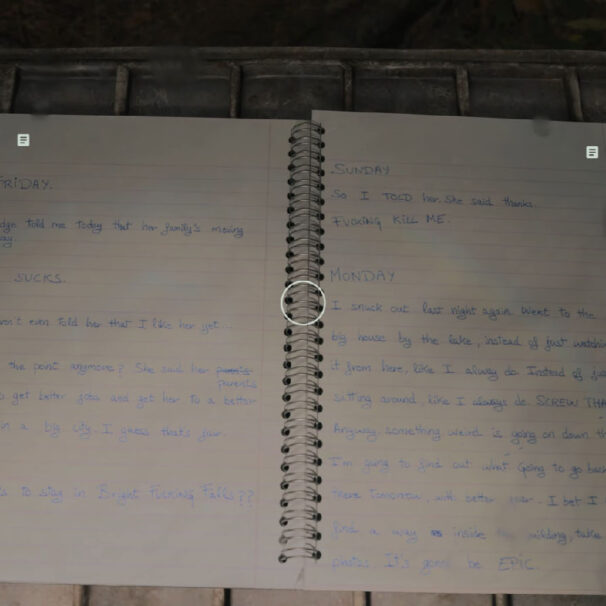 FRIDAY.
told me today that her family's moving
SUCKS.
even told her that I like her yet...
the point anymore? She said her
parents
get better jobs and get her to a better
in a big city. I guess that's fair.
to stay in Bright Fucking Falls??
SUNDAY
So I TOLD her. She said thanks.
FUCKING KILL ME.
MONDAY
I snuck out last night again. Went to the
big house by the lake, instead of just
it from here, like I always do. Instead of
sitting around, like I always do. SCREW
Anyway something weird is going on down
I'm going to find out what. Going to go
there tomorrow, with better I bet I
find a way inside take
photos. It's gonna be EPIC.